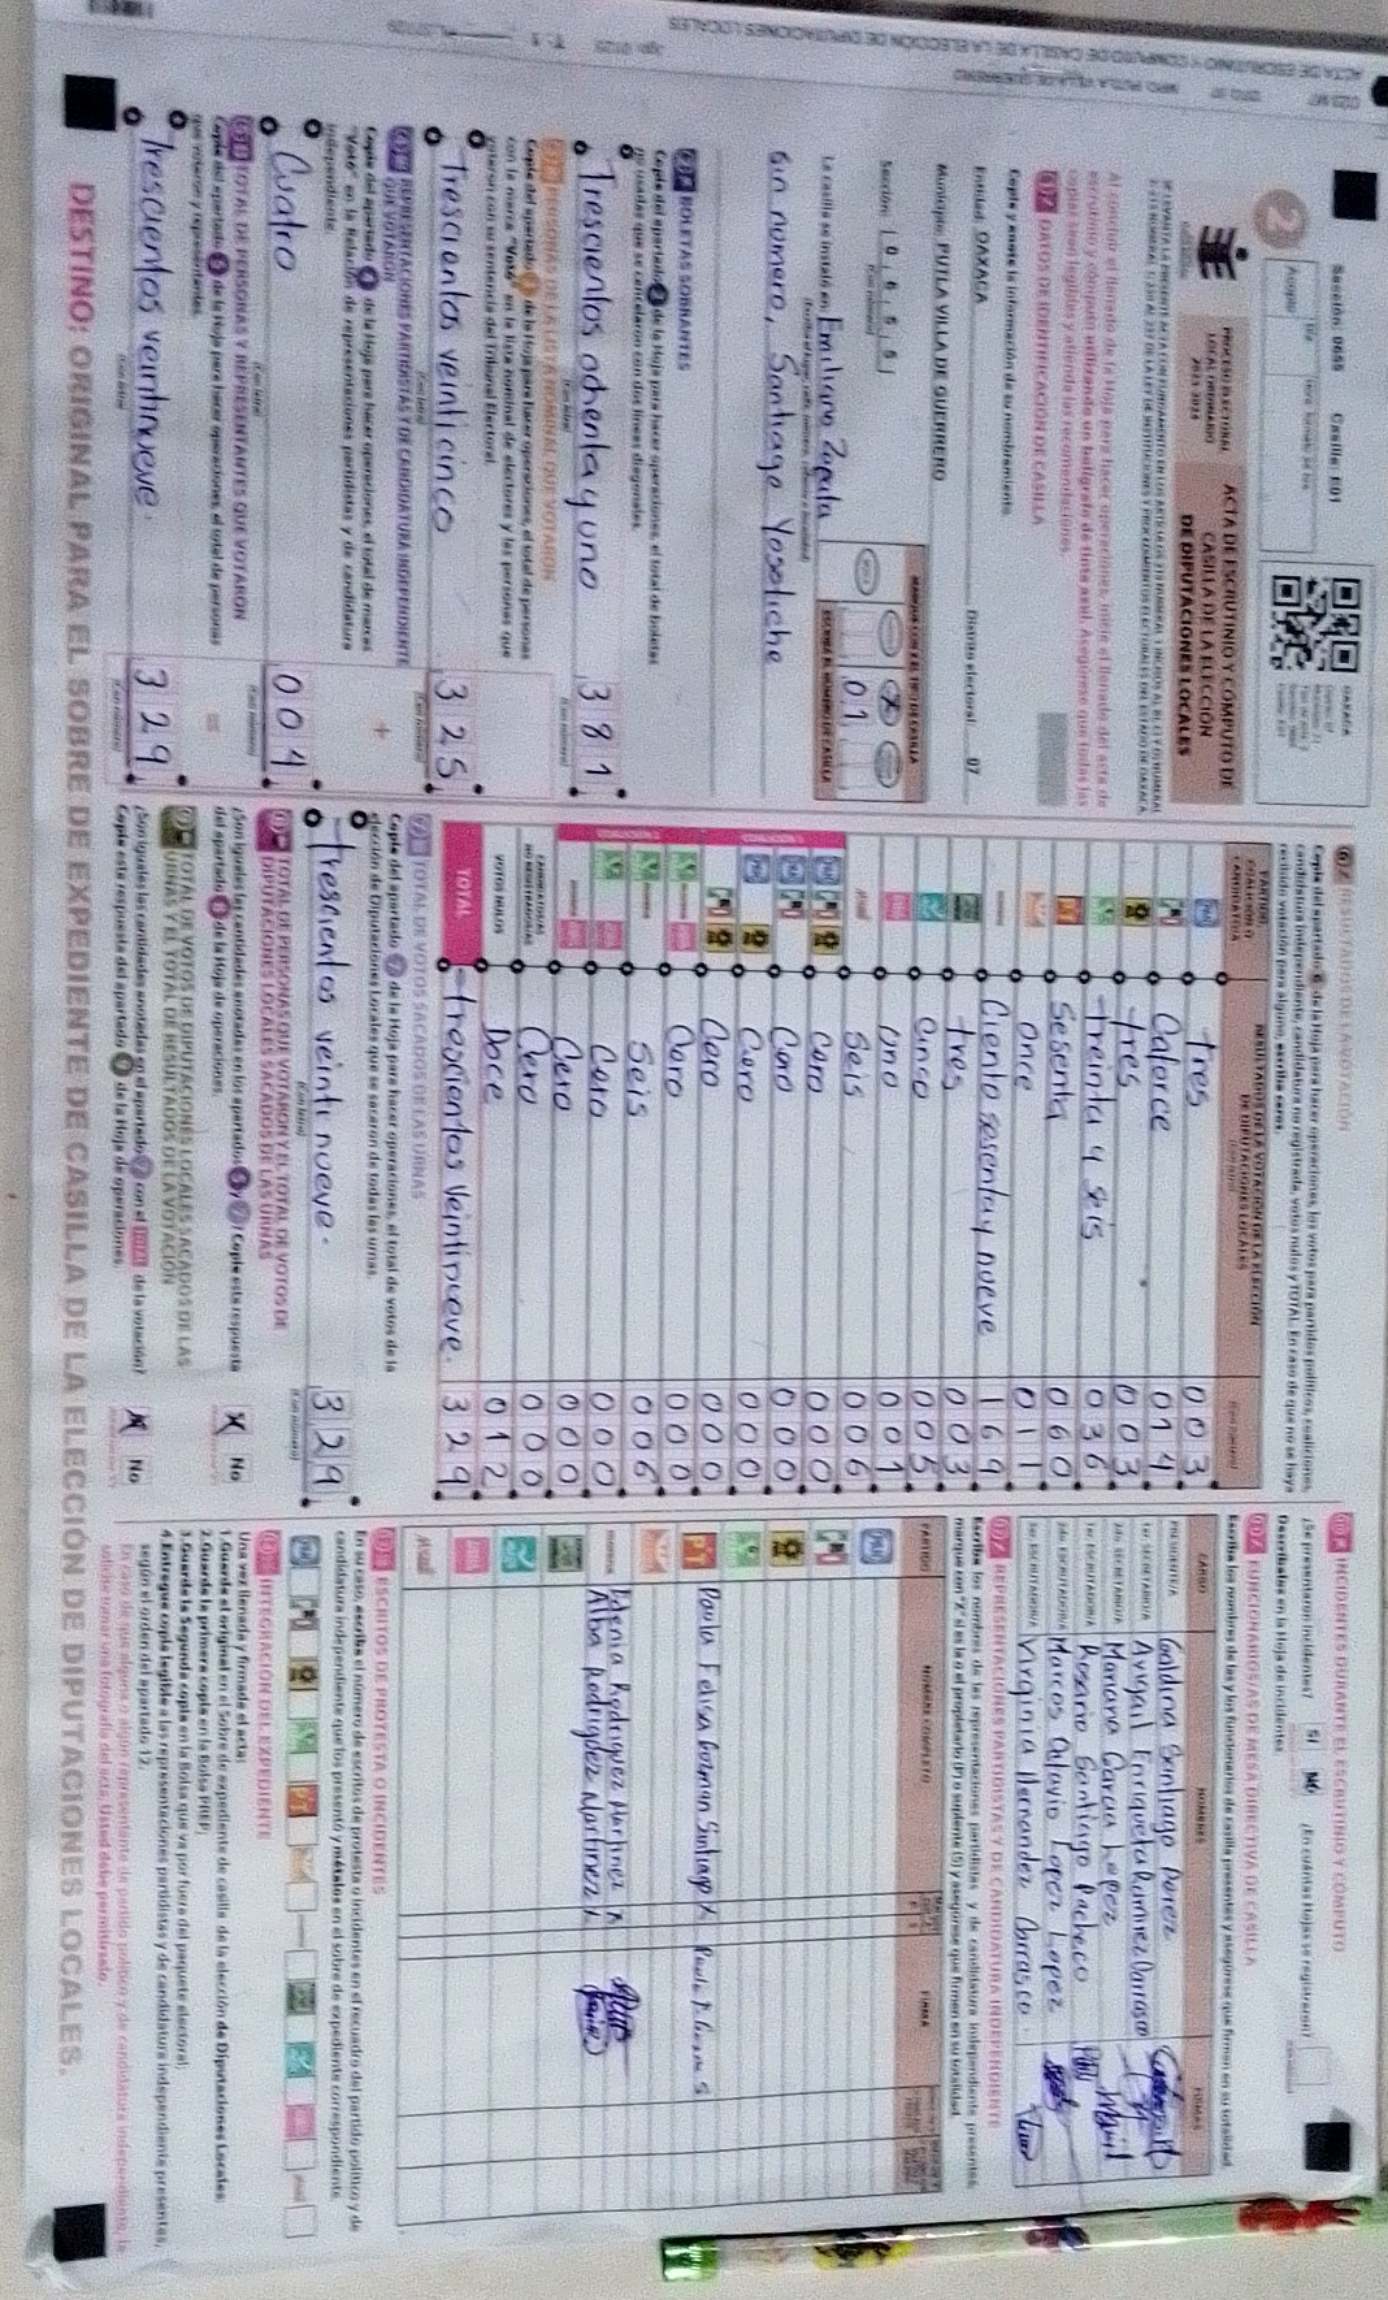 Sección: 0655 Casilla: E01
OAXACA
2
Acopio
PROCESO ELECTORAL
LOCAL ORDINARIO
2023-2024
ACTA DE ESCRUTINIO Y CÓMPUTO DE
CASILLA DE LA ELECCIÓN
DE DIPUTACIONES LOCALES
Al concluir el llenado de la Hoja para hacer operaciones, inicie el llenado del acta de
escrutinio y cómputo utilizando un bolígrafo de tinta azul. Asegúrese que todas las
copias sean legibles y atienda las recomendaciones.
DATOS DE IDENTIFICACIÓN DE CASILLA
Copie y anote la información de su nombramiento.
Entidad: OAXACA Distrito electoral: 07
Municipio: PUTLA VILLA DE GUERRERO
Sección: 0 6 5 5
MARQUE CON X EL TIPO DE CASILLA
ESCRIBA EL NÚMERO DE CASILLA
0 1
La casilla se instaló en: Emiliano Zapata
Sin número, Santiago Yosotiche
BOLETAS SOBRANTES
Copie del apartado 2 de la Hoja para hacer operaciones, el total de boletas
no usadas que se cancelaron con dos líneas diagonales.
Trescientos ochenta y uno 3 8 1
PERSONAS DE LA LISTA NOMINAL QUE VOTARON
Copie del apartado 3 de la Hoja para hacer operaciones, el total de personas
con la marca "Votó" en la lista nominal de electores y las personas que
votaron con su sentencia del Tribunal Electoral.
Trescientos veinticinco 3 2 5
REPRESENTACIONES PARTIDISTAS Y DE CANDIDATURA INDEPENDIENTE
QUE VOTARON
Copie del apartado 4 de la Hoja para hacer operaciones, el total de marcas
"Votó" en la Relación de representaciones partidistas y de candidatura
independiente.
Cuatro 0 0 4
TOTAL DE PERSONAS Y REPRESENTANTES QUE VOTARON
Copie del apartado 5 de la Hoja para hacer operaciones, el total de personas
que votaron y representantes.
Trescientos veintinueve. 3 2 9
RESULTADOS DE LA VOTACIÓN
Copie del apartado 6 de la Hoja para hacer operaciones, los votos para partidos políticos, coaliciones,
candidatura independiente, candidatura no registrada, votos nulos y TOTAL. En caso de que no se haya
recibido votación para alguno, escriba ceros.
PARTIDO,
COALICIÓN O
CANDIDATO/A
RESULTADOS DE LA VOTACIÓN DE LA ELECCIÓN
DE DIPUTACIONES LOCALES
tres 0 0 3
Catorce 0 1 4
tres 0 0 3
treinta y seis 0 3 6
Sesenta 0 6 0
Once 0 1 1
Ciento sesenta y nueve 1 6 9
tres 0 0 3
Cinco 0 0 5
Uno 0 0 1
Seis 0 0 6
Cero 0 0 0
Cero 0 0 0
Cero 0 0 0
Cero 0 0 0
Cero 0 0 0
Seis 0 0 6
Cero 0 0 0
Cero 0 0 0
CANDIDATURAS
NO REGISTRADAS Cero 0 0 0
VOTOS NULOS Doce 0 1 2
TOTAL trescientos Veintinueve. 3 2 9
TOTAL DE VOTOS SACADOS DE LAS URNAS
Copie del apartado 7 de la Hoja para hacer operaciones, el total de votos de la
elección de Diputaciones Locales que se sacaron de todas las urnas.
Trescientos veinti nueve. 3 2 9
TOTAL DE PERSONAS QUE VOTARON Y EL TOTAL DE VOTOS DE
DIPUTACIONES LOCALES SACADOS DE LAS URNAS
¿Son iguales las cantidades anotadas en los apartados 5 y 7? Copie esta respuesta
del apartado 8 de la Hoja de operaciones.
No
TOTAL DE VOTOS DE DIPUTACIONES LOCALES SACADOS DE LAS
URNAS Y EL TOTAL DE RESULTADOS DE LA VOTACIÓN
¿Son iguales las cantidades anotadas en el apartado 7 con el TOTAL de la votación?
Copie esta respuesta del apartado 9 de la Hoja de operaciones.
No
INCIDENTES DURANTE EL ESCRUTINIO Y CÓMPUTO
¿Se presentaron incidentes? Sí No ¿En cuántas Hojas se registraron?
Descríbalos en la Hoja de incidentes
FUNCIONARIOS/AS DE MESA DIRECTIVA DE CASILLA
Escriba los nombres de las y los funcionarios de casilla presentes y asegúrese que firmen en su totalidad.
CARGO NOMBRES FIRMAS
PRESIDENTE/A Galdina Santiago Perez
1er. SECRETARIO/A Avigail Enriqueta Ramirez Carrasco
2do. SECRETARIO/A Mariana Garcia Lopez
1er. ESCRUTADOR/A Rosario Santiago Pacheco
2do. ESCRUTADOR/A Marcos Octavio Lopez Lopez
3er. ESCRUTADOR/A Virginia Hernandez Carrasco.
REPRESENTACIONES PARTIDISTAS Y DE CANDIDATURA INDEPENDIENTE
Escriba los nombres de las representaciones partidistas y de candidatura independiente presentes,
marque con "X" si es la o el propietario (P) o suplente (S) y asegúrese que firmen en su totalidad.
PARTIDO NOMBRE COMPLETO FIRMA
PT Paula Felisa Guzman Santiago X
morena Idenia Rodriguez Martinez X
Alba Rodriguez Martinez X
ESCRITOS DE PROTESTA O INCIDENTES
En su caso, escriba el número de escritos de protesta o incidentes en el recuadro del partido político y de
candidatura independiente que los presentó y métalos en el sobre de expediente correspondiente.
INTEGRACIÓN DEL EXPEDIENTE
Una vez llenada y firmada el acta:
1. Guarde el original en el Sobre de expediente de casilla de la elección de Diputaciones Locales
2. Guarde la primera copia en la Bolsa PREP;
3. Guarde la Segunda copia en la Bolsa que va por fuera del paquete electoral;
4. Entregue copia legible a las representaciones partidistas y de candidatura independiente presentes,
según el orden del apartado 12.
En caso de que alguna o algún representante de partido político y de candidatura independiente, le
solicite tomar una fotografía del acta, Usted debe permitírselo.
DESTINO: ORIGINAL PARA EL SOBRE DE EXPEDIENTE DE CASILLA DE LA ELECCIÓN DE DIPUTACIONES LOCALES.